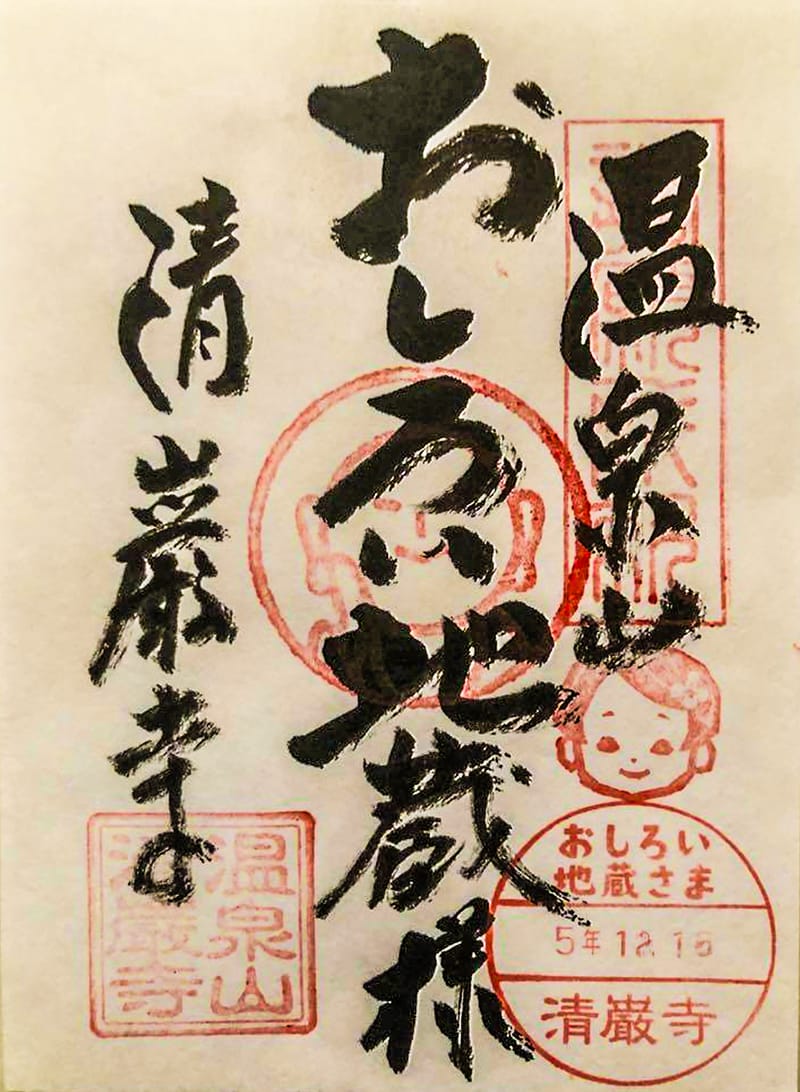 温泉山
おしろい地蔵様
清巌寺
おしろい
地蔵さま
5年12.16
清巌寺
温泉山
清巌寺